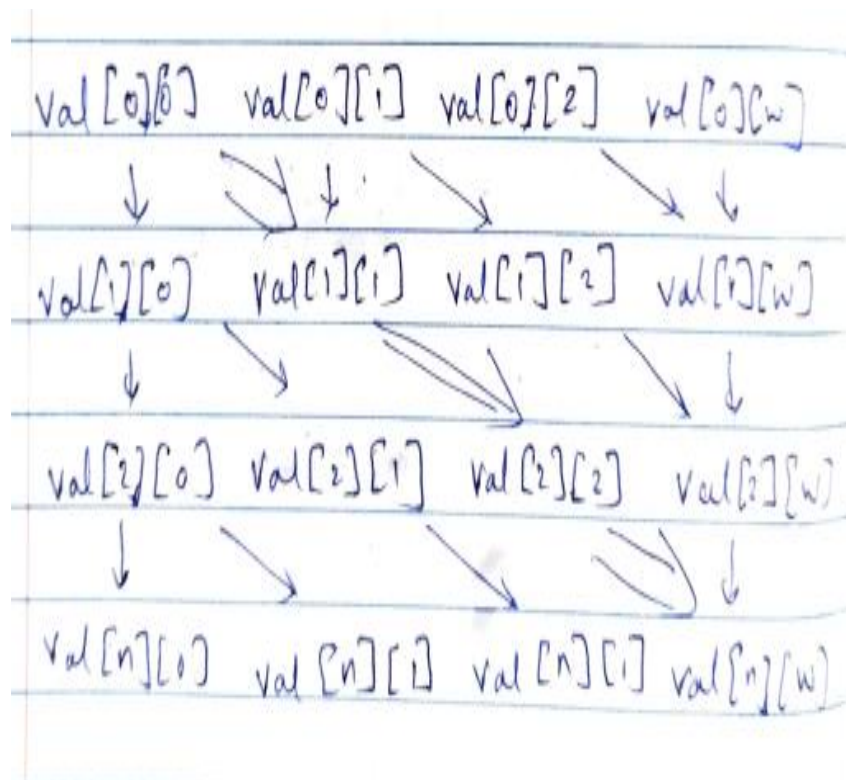 val[0][0] val[0][1] val[0][2] val[0][w]
val[1][0] val[1][1] val[1][2] val[1][w]
val[2][0] val[2][1] val[2][2] val[2][w]
val[n][0] val[n][1] val[n][1] val[n][w]